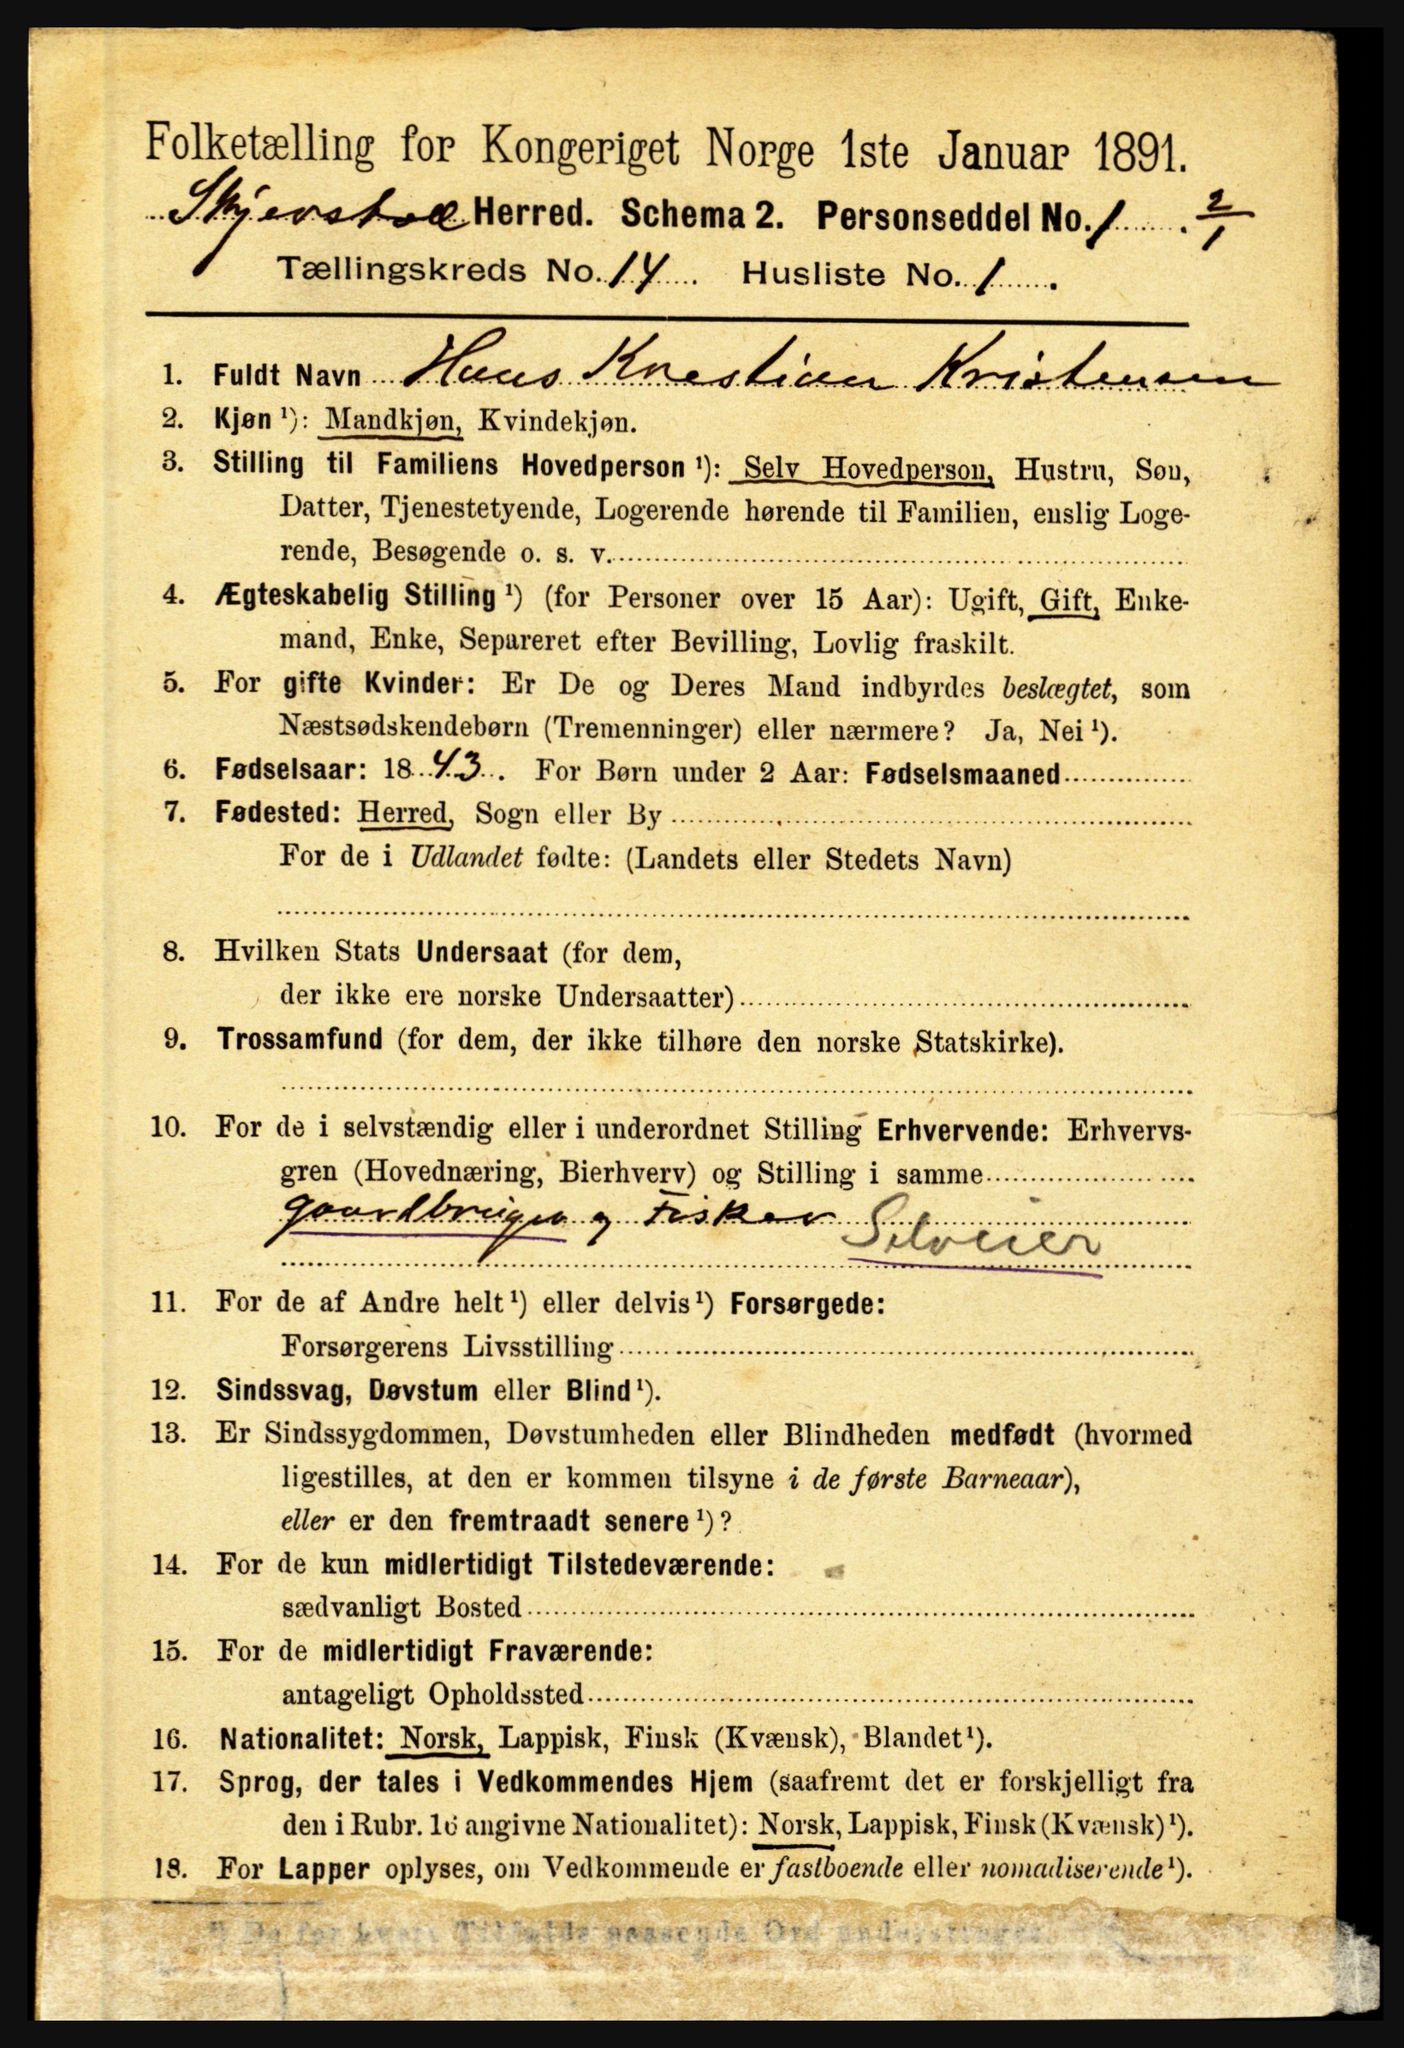 Folketælling for Kongeriget Norge 1ste Januar 1891.
Skjerstad Herred. Schema 2. Personseddel No. 1. 2/1
Tællingskreds No. 14 Husliste No. 1.
1. Fuldt Navn Hans Krestian Kristensen
2. Kjøn ¹): Mandkjøn, Kvindekjøn.
3. Stilling til Familiens Hovedperson ¹): Selv Hovedperson, Hustru, Søn,
Datter, Tjenestetyende, Logerende hørende til Familien, enslig Loge-
rende, Besøgende o. s. v.
4. Ægteskabelig Stilling ¹) (for Personer over 15 Aar): Ugift, Gift, Enke-
mand, Enke, Separeret efter Bevilling, Lovlig fraskilt.
5. For gifte Kvinder: Er De og Deres Mand indbyrdes beslægtet, som
Næstsødskendebørn (Tremenninger) eller nærmere? Ja, Nei ¹).
6. Fødselsaar: 1843. For Børn under 2 Aar: Fødselsmaaned
7. Fødested: Herred, Sogn eller By
For de i Udlandet fødte: (Landets eller Stedets Navn)
8. Hvilken Stats Undersaat (for dem,
der ikke ere norske Undersaatter)
9. Trossamfund (for dem, der ikke tilhøre den norske Statskirke).
10. For de i selvstændig eller i underordnet Stilling Erhvervende: Erhvervs-
gren (Hovednæring, Bierhverv) og Stilling i samme
gaardbruger og Fisker Selveier
11. For de af Andre helt ¹) eller delvis ¹) Forsørgede:
Forsørgerens Livsstilling
12. Sindssvag, Døvstum eller Blind ¹).
13. Er Sindssygdommen, Døvstumheden eller Blindheden medfødt (hvormed
ligestilles, at den er kommen tilsyne i de første Barneaar),
eller er den fremtraadt senere ¹)?
14. For de kun midlertidigt Tilstedeværende:
sædvanligt Bosted
15. For de midlertidigt Fraværende:
antageligt Opholdssted
16. Nationalitet: Norsk, Lappisk, Finsk (Kvænsk), Blandet ¹).
17. Sprog, der tales i Vedkommendes Hjem (saafremt det er forskjelligt fra
den i Rubr. 16 angivne Nationalitet): Norsk, Lappisk, Finsk (Kvænsk) ¹).
18. For Lapper oplyses, om Vedkommende er fastboende eller nomadiserende ¹).
¹) De for hvert Tilfælde passende Ord understreges.